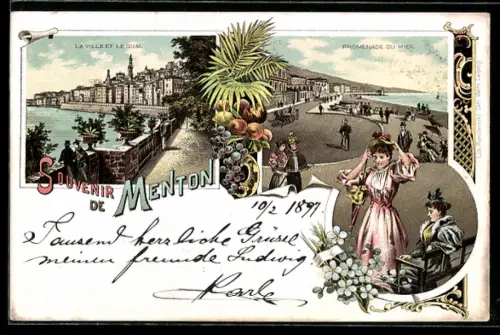 LA VILLE ET LE QUAI
PROMENADE DU MIDI
SOUVENIR
DE MENTON
10/2 1897
Tausend herzliche Grüsse
meinem freunde Ludwig
Karle